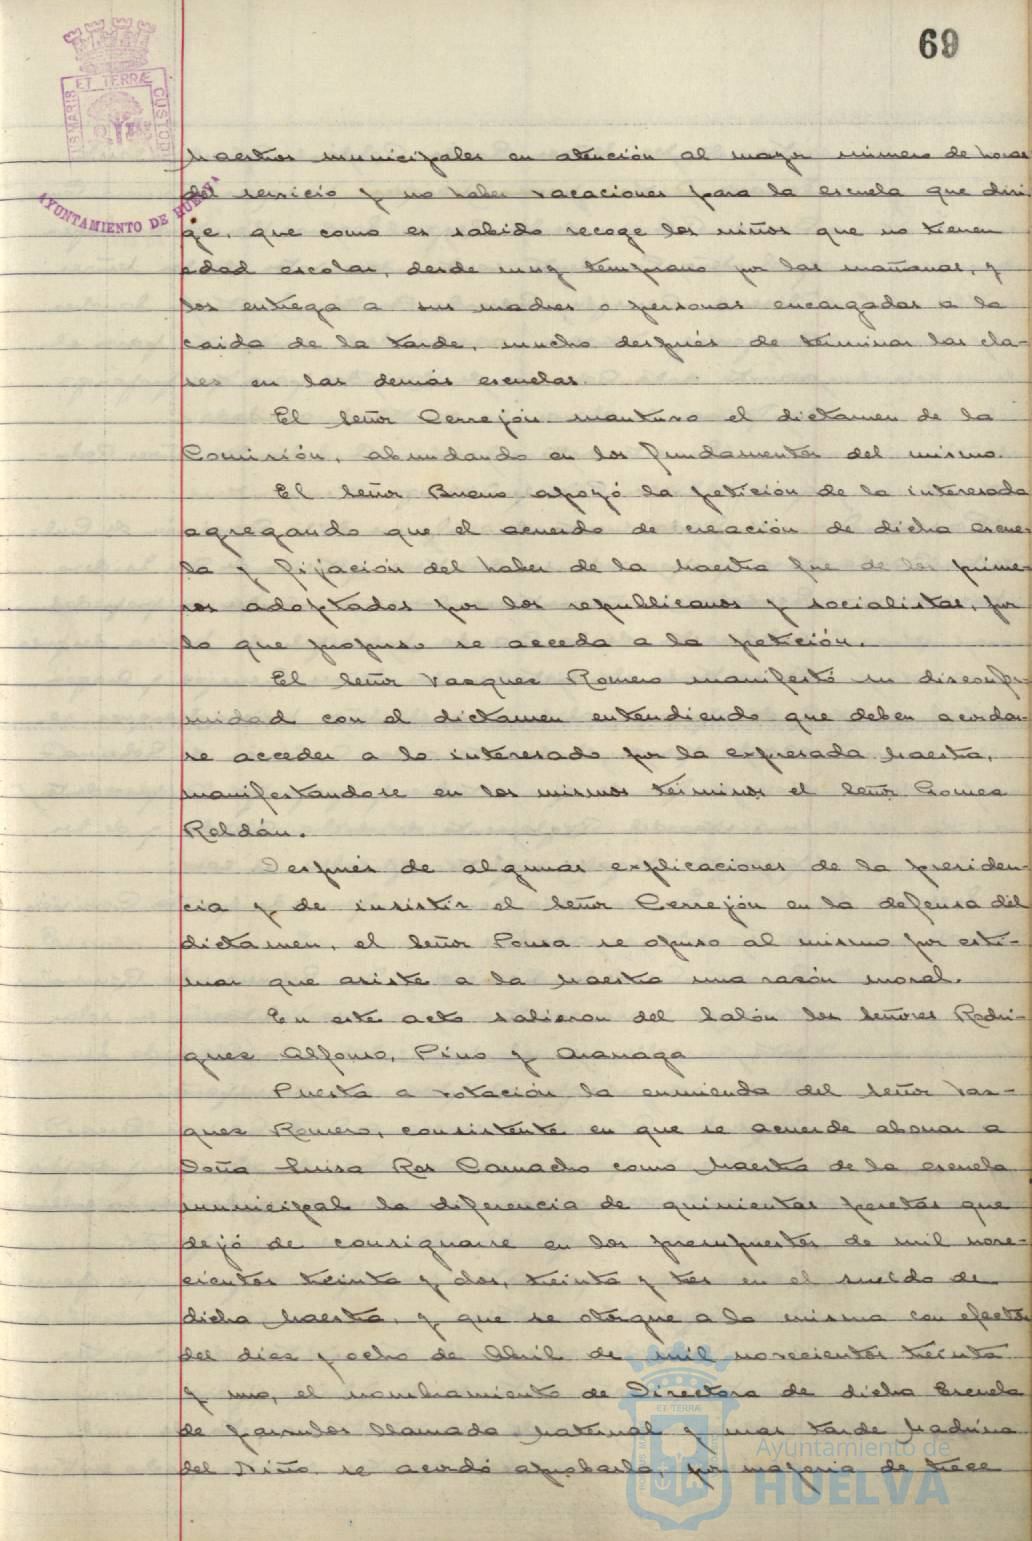 69
ET TERRÆ
AYUNTAMIENTO DE HUELVA
Maestros municipales en atención al mayor número de horas
del servicio y no haber vacaciones para la escuela que diri
ge, que como es sabido recoge los niños que no tienen
edad escolar, desde muy temprano por las mañanas, y
los entrega a sus madres o personas encargadas a la
caida de la tarde, mucho después de terminar las cla-
ses en las demás escuelas.
El Señor Cerrejón mantuvo el dictamen de la
Comisión, abundando en los fundamentos del mismo.
El Señor Bueno apoyó la petición de la interesada
agregando que el acuerdo de creación de dicha escue-
la y fijación del haber de la Maestra fue de los prime-
ros adoptados por los republicanos y socialistas, por
lo que propuso se acceda a la petición.
El Señor Vazquez Romero manifestó su disconfor-
midad con el dictamen entendiendo que deben acordar-
se acceder a lo interesado por la expresada Maestra,
manifestandose en los mismos términos el Señor Gomez
Roldán.
Después de algunas explicaciones de la presiden-
cia y de insistir el Señor Cerrejón en la defensa del
dictamen, el Señor Ponsa se opuso al mismo por esti-
mar que asiste a la Maestra una razón moral.
En este acto salieron del Salón los Señores Rodri-
guez Alfonso, Pino y Aranaga
Puesta a votación la enmienda del Señor Vaz-
quez Romero, consistente en que se acuerde abonar a
Doña Luisa Ros Camacho como Maestra de la escuela
municipal la diferencia de quinientas pesetas que
dejó de consignarse en los presupuestos de mil nove-
cientos treinta y dos, treinta y tres en el sueldo de
dicha Maestra, y que se otorgue a la misma con efectos
del diez y ocho de Abril de mil novecientos treinta
y uno, el nombramiento de Directora de dicha Escuela
de párvulos llamada Maternal y mas tarde Madrina
del Niño se acordó aprobarla, por mayoria de trece
Ayuntamiento de
HUELVA